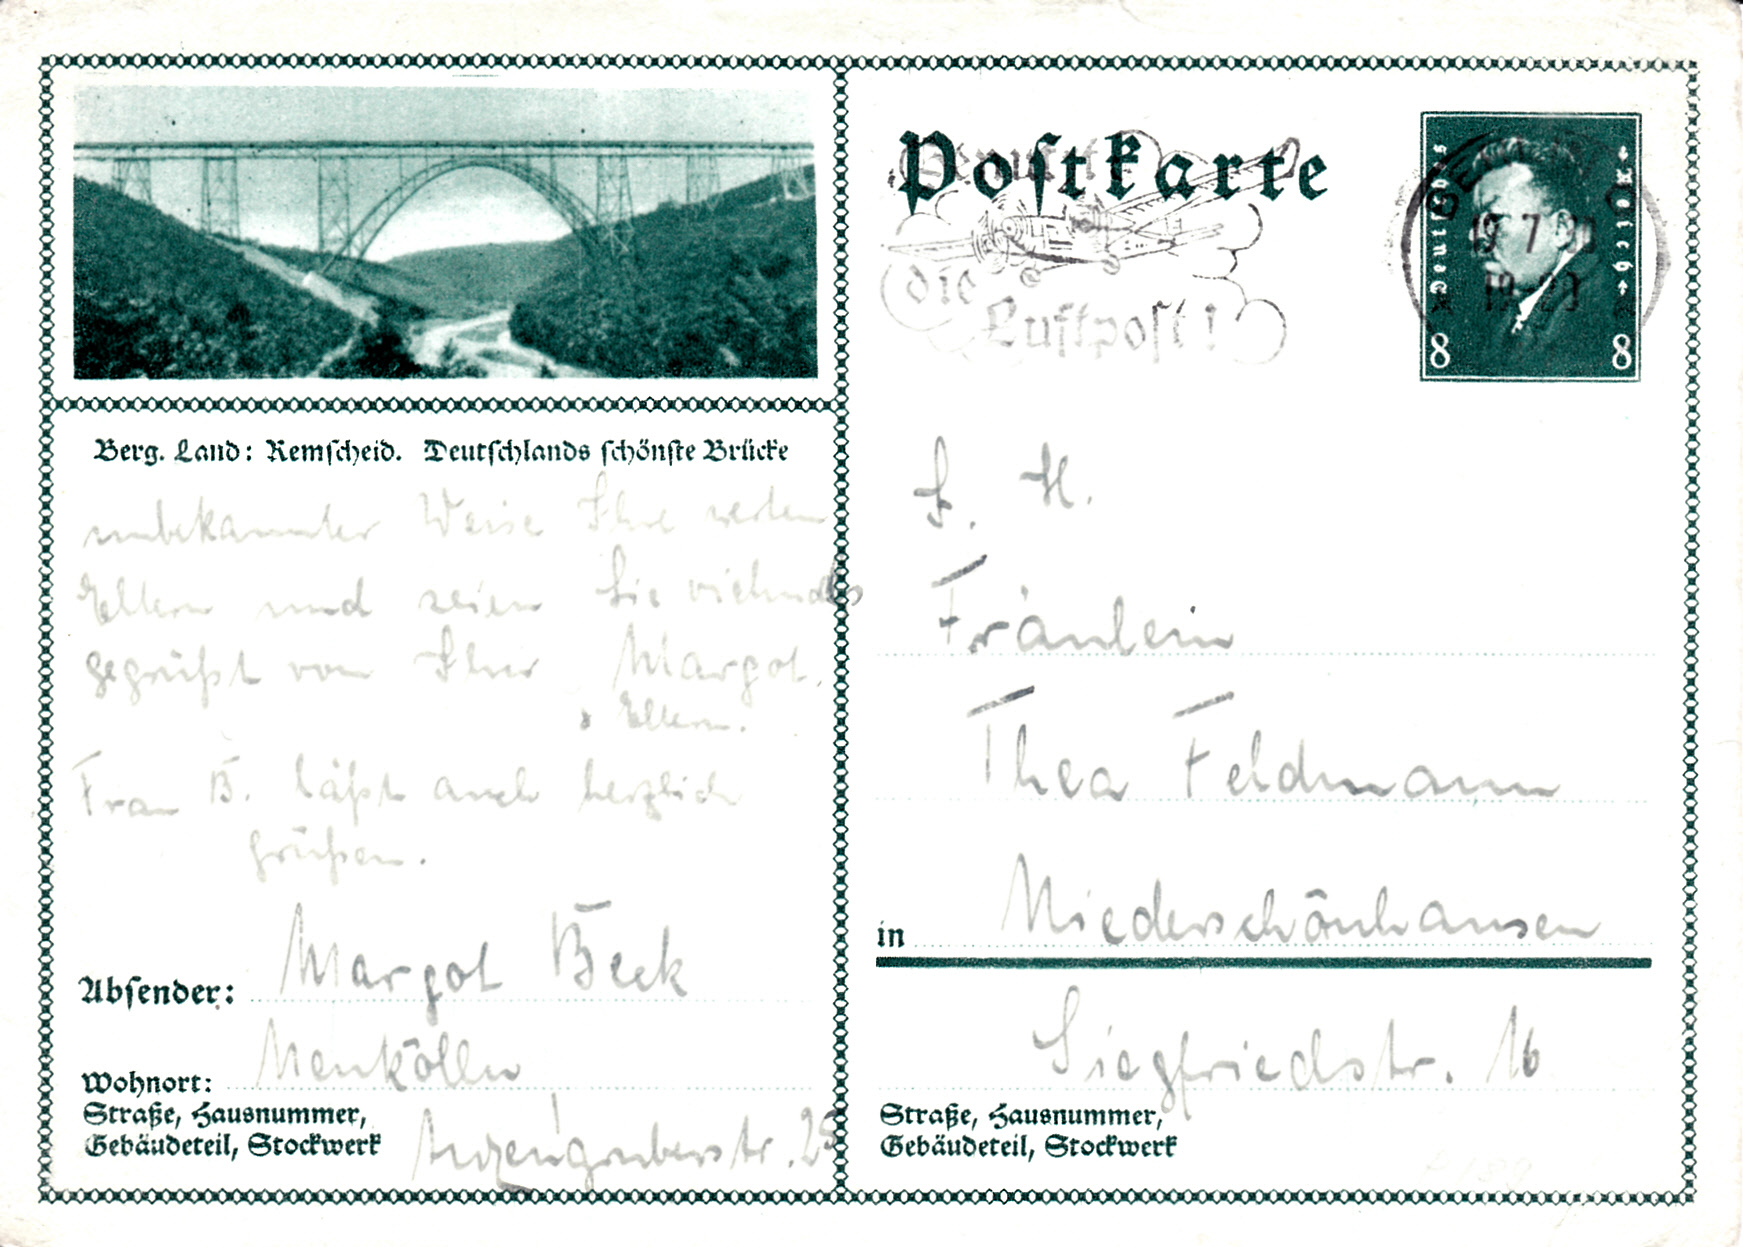 Berg. Land: Remscheid. Deutschlands schönste Brücke
unbekannter Weise Ihre werten
Eltern und seien Sie vielmals
gegrüßt von Ihrer Margot.
Eltern.
Frau B. läßt auch herzlich
grüßen.
Absender: Margot Beck
Wohnort: Neukölln
Straße, Hausnummer,
Gebäudeteil, Stockwerk
Anzengruberstr. 25
Postkarte
Benutzt
die
Luftpost!
Deutsches Reich
8 8
BERLIN
19.7.
19-20
S. H.
Fräulein
Thea Feldmann
in Niederschönhausen
Siegfriedstr. 16
Straße, Hausnummer,
Gebäudeteil, Stockwerk